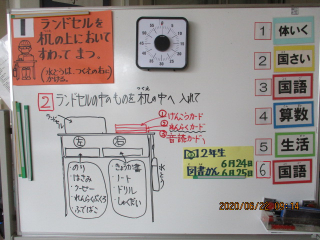 ランドセルを
机の上において
すわってまつ。
2 ランドセルの中のものを机の中へ入れて
つくえ
ランドセル
①けんこうカード
③れんらくカード
音読カード
左
右
のり
はさみ
クーピー
れんらくぶくろ
ふでばこ
きょうか書
ノート
ドリル
しゅくだい
水とう
1 体いく
2 国さい
3 国語
4 算数
5 生活
6 国語
12年生
6月24日
図書かん 6月25日